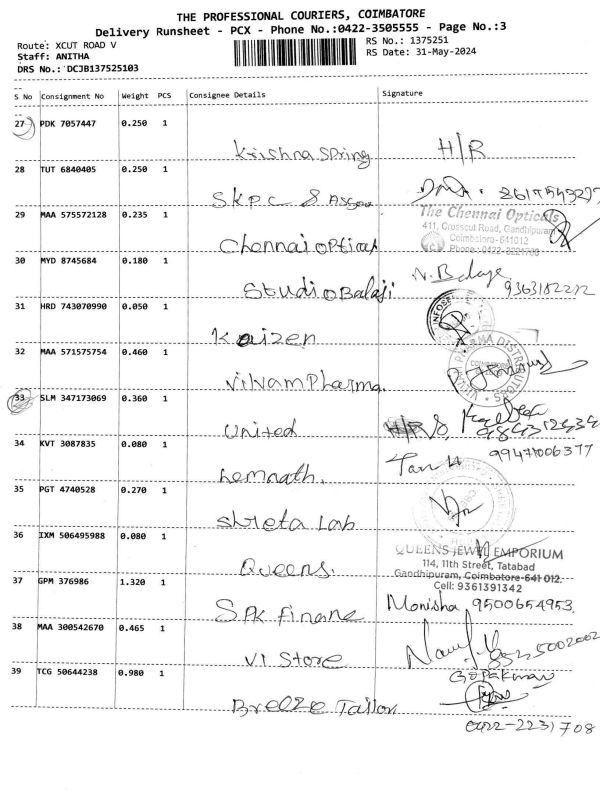 THE PROFESSIONAL COURIERS, COIMBATORE
Delivery Runsheet - PCX - Phone No.:0422-3505555 - Page No.:3
Route: XCUT ROAD V
RS No.: 1375251
Staff: ANITHA
RS Date: 31-May-2024
DRS No.: DCJB137525103
S No Consignment No Weight PCS Consignee Details Signature
27 PDK 7057447 0.250 1
Krishna Spring H/R
28 TUT 6840405 0.250 1
SKPC &
29 MAA 575572128 0.235 1
The Chennai Opticals
411, Crosscut Road, Gandhipuram
Coimbatore-641012
Chennai optical
30 MYD 8745684 0.180 1
Studio Balaji N. Balaje 9363182212
31 HRD 743070990 0.050 1
Kaizen
32 MAA 571575754 0.460 1
Vilvam Pharma
33 SLM 347173069 0.360 1
United H/R
34 KVT 3087835 0.080 1
99471006377
35 PGT 4740528 0.270 1
Lab
36 IXM 506495988 0.080 1
QUEENS JEWEL EMPORIUM
114, 11th Street, Tatabad
Gandhipuram, Coimbatore-641 012.
Cell: 9361391342
Queens
37 GPM 376986 1.320 1
SPK Finane Monisha 9500654953
38 MAA 300542670 0.465 1
VI Store
39 TCG 50644238 0.980 1
Breeze Tailor
0422-2231708